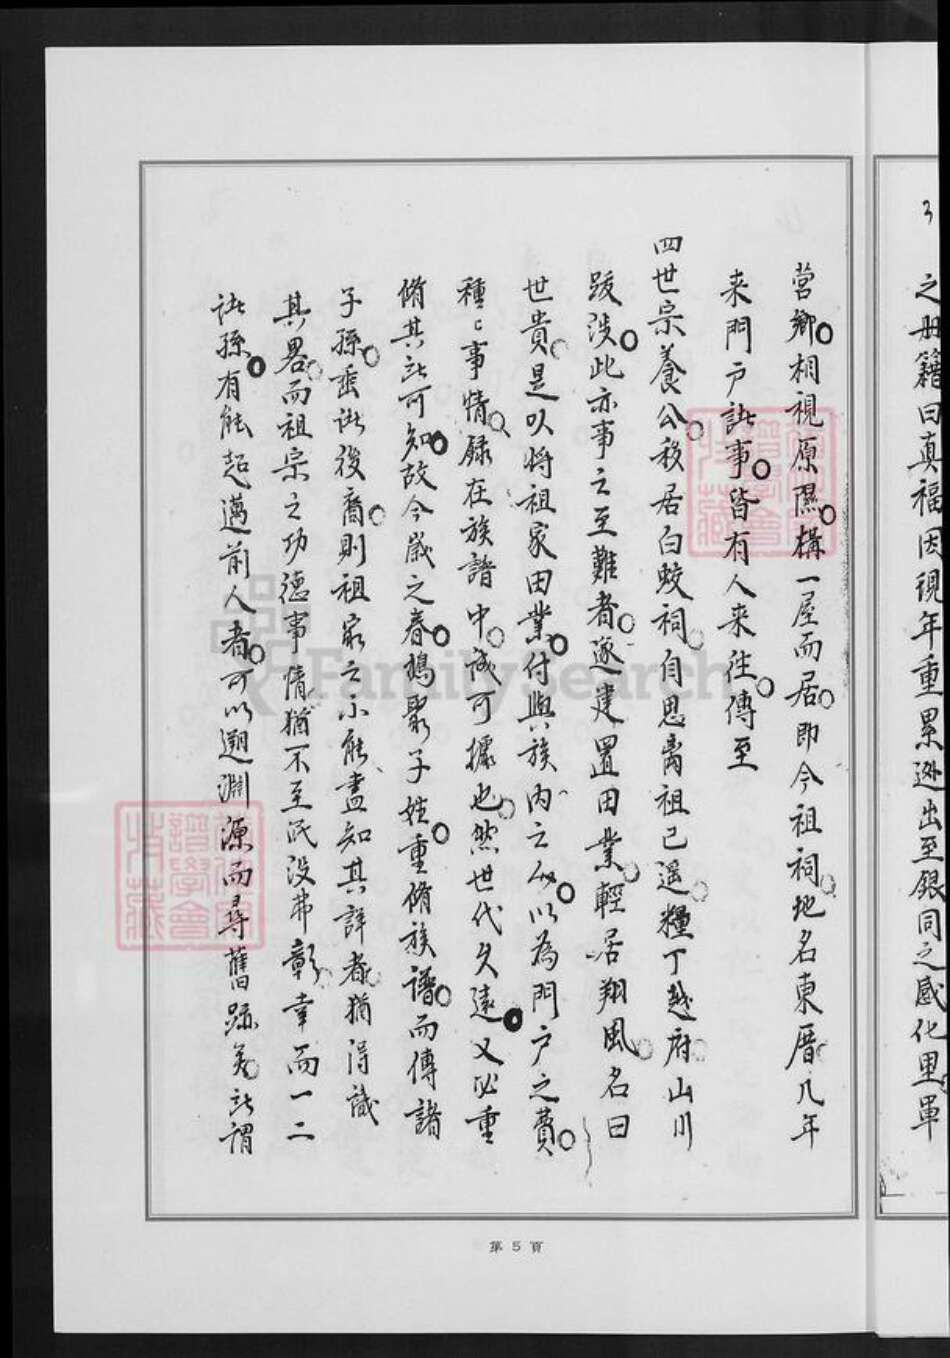 3
之册籍曰真福因視年重累遜出至銀同之感化里軍
營鄉相視原隰構一屋而居即今祖祠地名東厝几年
来門户諸事皆有人来往傳至
四世宗養公移居白蛟祠自思离祖已遥糧丁越府山川
跋涉此亦事之至難者逐建置田業輕居翔風名曰
世貴是以將祖家田業付與族内之人以為門户之費
種〻事情録在族譜中誠可據也然世代久遠又必重
脩其所可知故今歲之春鳩聚子姓重脩族譜而傳諸
子孫垂諸後裔則祖宗之不能盡知其詳者猶得識
其畧而祖宗之功德事情猶不至泯没弗彰幸而一二
諸孫有能起邁前人者可以遡淵源而尋舊跡矣所謂
第 5 頁
FamilySearch